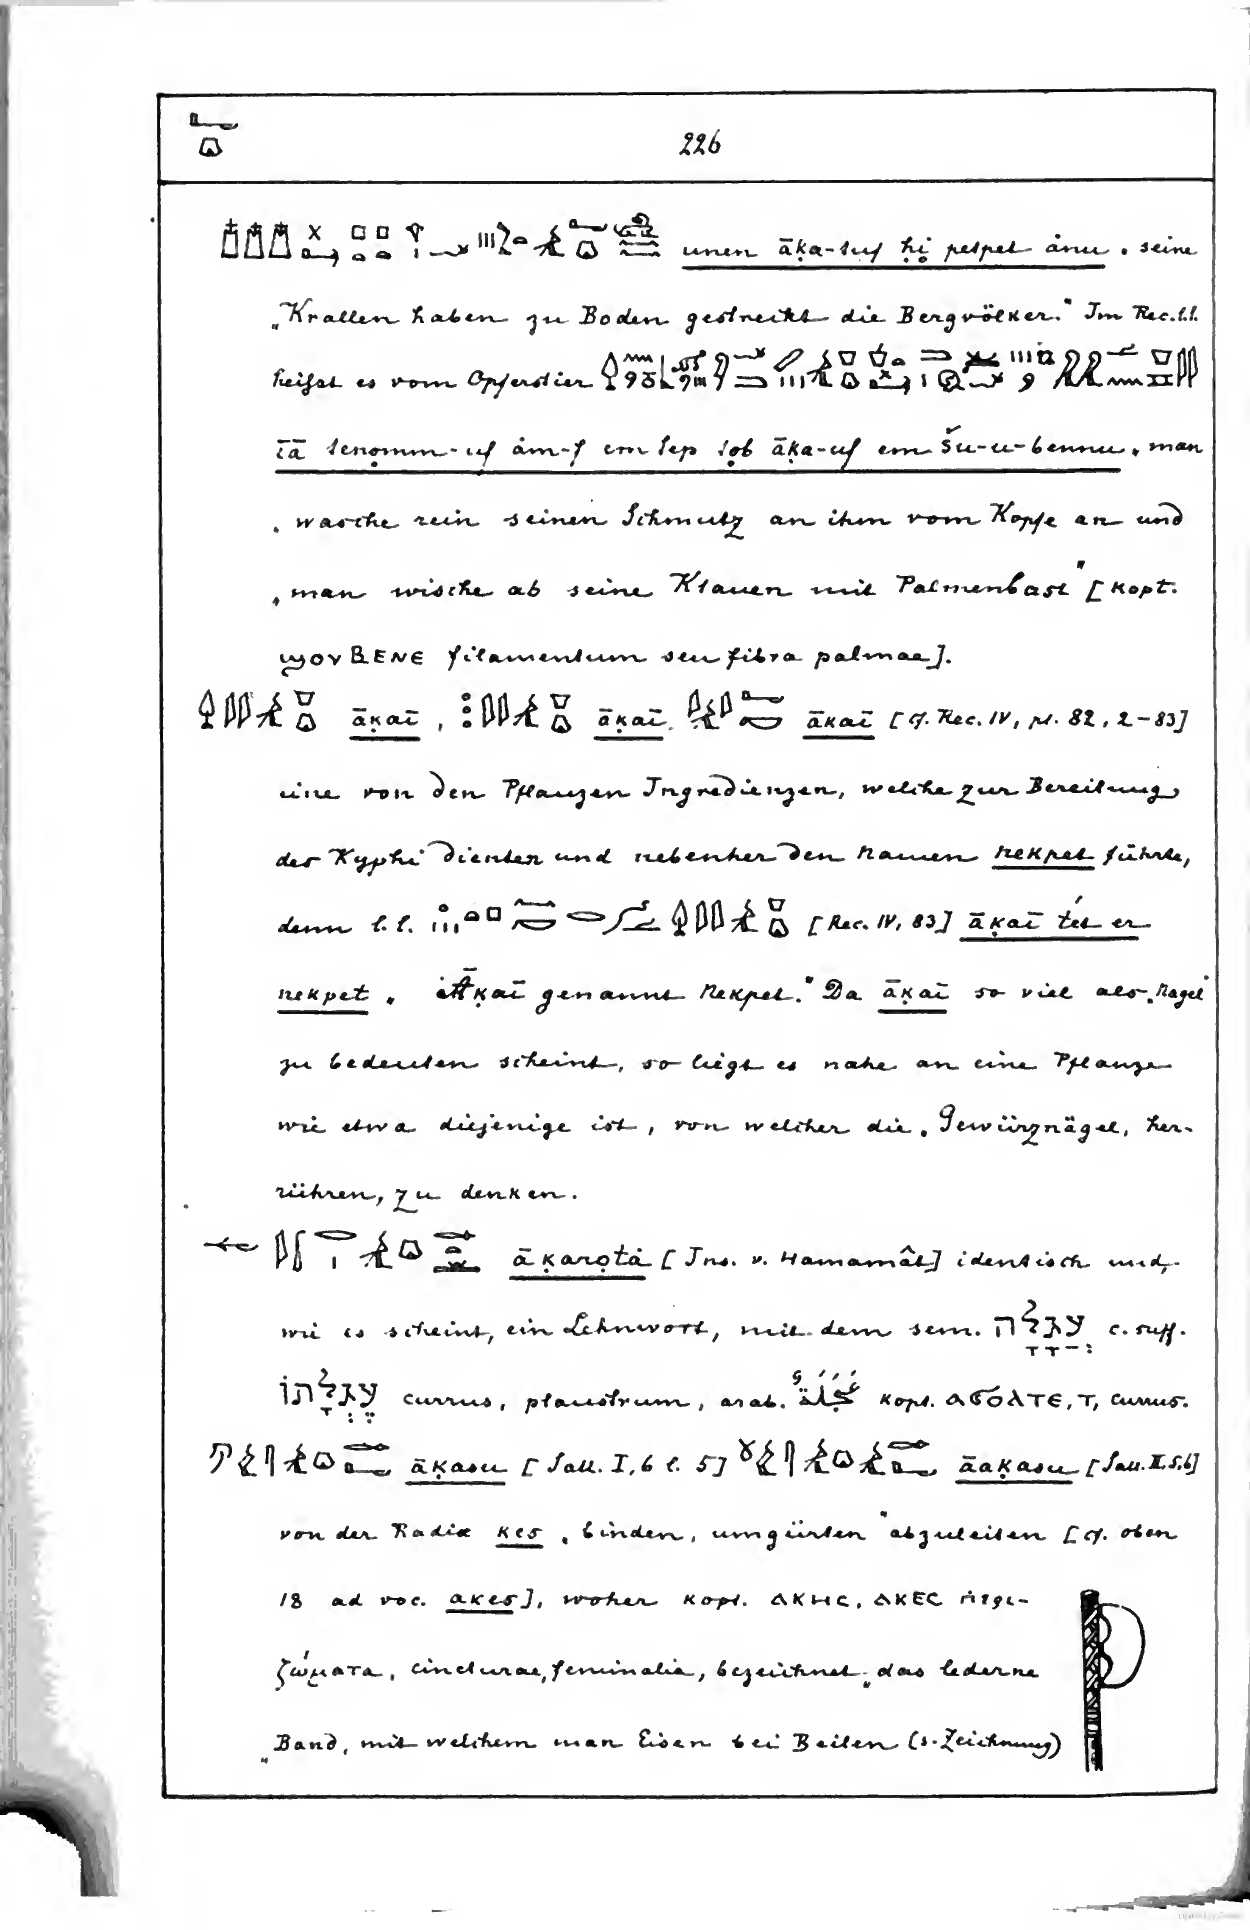 226
unen āḳa-tuf ḥi petpet ȧnu „ seine
„Krallen haben zu Boden gestreckt die Bergvölker." Im Rec. l.l.
heißt es vom Opferstier
tā senomm-uf ȧm-f em tep sob āḳa-uf em šu-u-bennu „ man
„ wasche rein seinen Schmutz an ihm vom Kopfe an und
„ man wische ab seine Klauen mit Palmenbast" [kopt.
ϣⲟⲩⲃⲉⲛⲉ filamentum seu fibra palmae].
āḳaī , āḳaī, ākaī [cf. Rec. IV, pl. 82, 2-83]
eine von den Pflanzen Ingredienzen, welche zur Bereitung
des Kyphi dienten und nebenher den Namen nekpet führte,
denn l. l. [Rec. IV, 83] āḳaī t́et er
nekpet „ Āḳaī genannt Nekpet." Da āḳaī so viel als „Nagel"
zu bedeuten scheint, so liegt es nahe an eine Pflanze
wie etwa diejenige ist, von welcher die „Gewürznägel„ her-
rühren, zu denken.
āḳaroṭȧ [Ins. v. Hamamât] identisch und,
wie es scheint, ein Lehnwort, mit dem sem. עֲגָלָה c. suff.
עֶגְלָתוֹ currus, plaustrum, arab. عجلة kopt. ⲁϭⲟⲗⲧⲉ, ⲧ, currus.
āḳasu [Sall. I, 6 l. 5] āaḳasu [Sall. II, 5,6]
von der Radix kes „binden, umgürten" abzuleiten [cf. oben
18 ad voc. akes], woher kopt. ⲁⲕⲏⲥ, ⲁⲕⲉⲥ περι-
ζώματα, cincturae, feminalia, bezeichnet „das lederne
„Band, mit welchem man Eisen bei Beilen (s. Zeichnung)